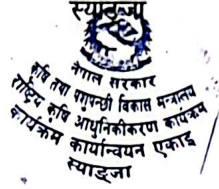 स्याङ्जा
नेपाल सरकार
कृषि तथा पशुपन्छी विकास मन्त्रालय
राष्ट्रिय कृषि आधुनिकीकरण कार्यक्रम
कार्यक्रम कार्यान्वयन एकाइ
स्याङ्जा